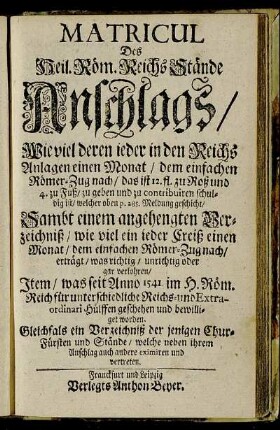 MATRICUL
Des
Heil. Röm. Reichs Stände
Anschlags/
Wie viel deren ieder in den Reichs
Anlagen einen Monat / dem einfachen
Römer-Zug nach / das ist 12. fl. zu Roß und
4. zu Fuß/ zu geben und zu contribuiren schul-
dig ist, welcher oben p. 285. Meldung geschicht/
Sambt einem angehengten Ver-
zeichniß / wie viel ein ieder Creiß einen
Monat / dem einfachen Römer-Zug nach/
erträgt/ was richtig / unrichtig oder
gar verlohren/
Item/ was seit Anno 1541. im H. Röm.
Reich für unterschiedliche Reichs- und Extra-
ordinari-Hülffen geschehen und bewilli-
get worden.
Gleichfals ein Verzeichniß der jenigen Chur-
Fürsten und Stände / welche neben ihrem
Anschlag auch andere eximiren und
vertreten.
Franckfurt und Leipzig
Verlegts Anthon Beyer.